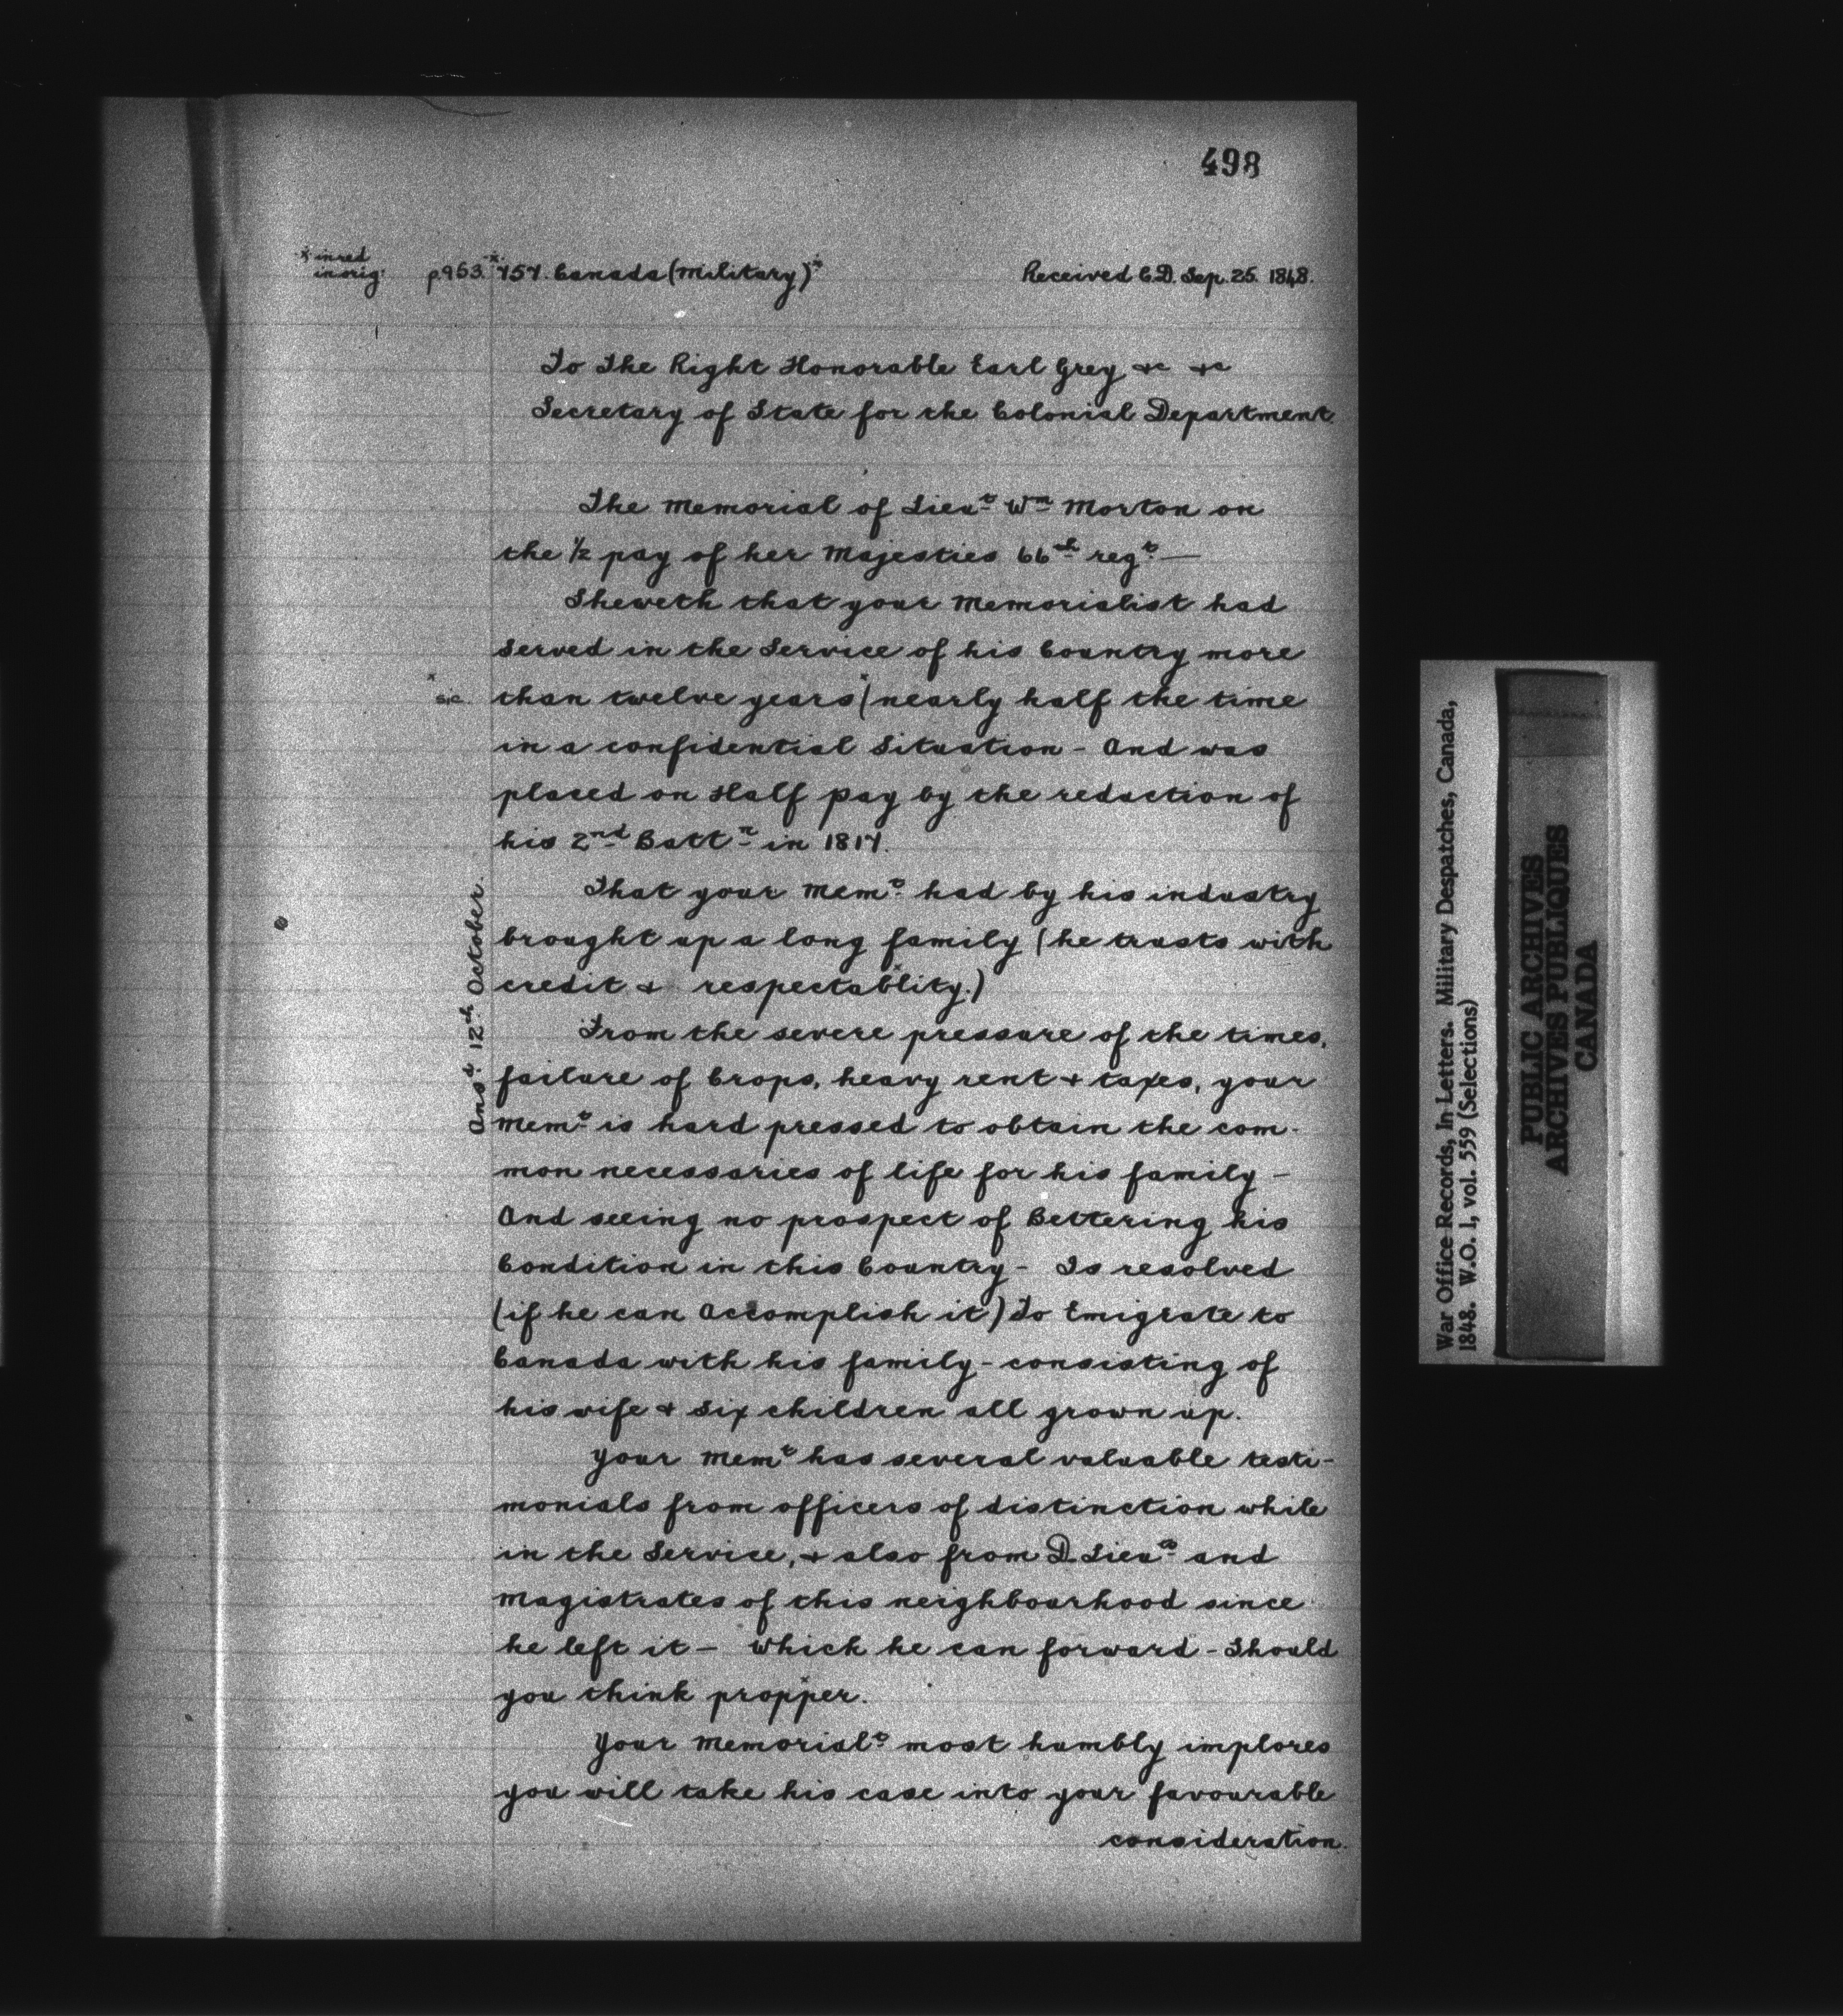 498
* in red
in orig.
p.963. *757. Canada (Military)*
Received C.D. Sep. 25. 1848.
To The Right Honorable Earl Grey &c &c
Secretary of State for the Colonial Department.
The Memorial of Lieut Wm Morton on
the ½ pay of her Majesties 66th regt —
Sheweth that your Memorialist had
served in the Service of his Country more
* sic.
than twelve years* (nearly half the time
in a confidential Situation - And was
placed on Half Pay by the reduction of
his 2nd Battn in 1817.
That your Memt had by his industry
brought up a long family (he trusts with
credit & respectablity.)
From the severe pressure of the times,
failure of Crops, heavy rent & taxes, your
Memt is hard pressed to obtain the com-
mon necessaries of life for his family -
And seeing no prospect of Bettering his
Condition in this Country - Is resolved
(if he can Accomplish it) To Emigrate to
Canada with his family - consisting of
his wife & Six children all grown up.
Your Memt has several valuable testi-
monials from officers of distinction while
in the Service, & also from D. Lieuts and
Magistrates of this neighbourhood since
he left it - Which he can forward - Should
you think propper.
Your Memorialt most humbly implores
you will take his case into your favourable
consideration.
Ansd 12th October.
War Office Records, In Letters. Military Despatches, Canada,
1848. W.O. 1, vol. 559 (Selections)
PUBLIC ARCHIVES
ARCHIVES PUBLIQUES
CANADA